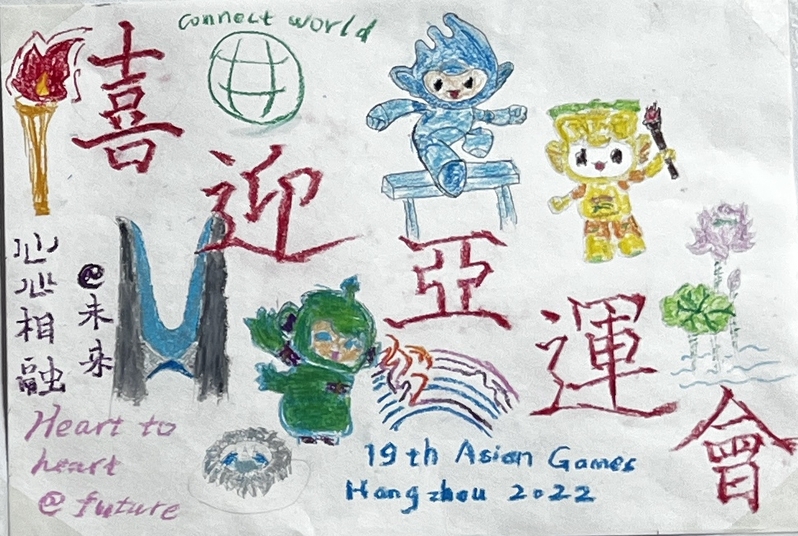 connect world
喜迎亞運會
心心相融
@未来
Heart to
heart
@ future
19th Asian Games
Hangzhou 2022